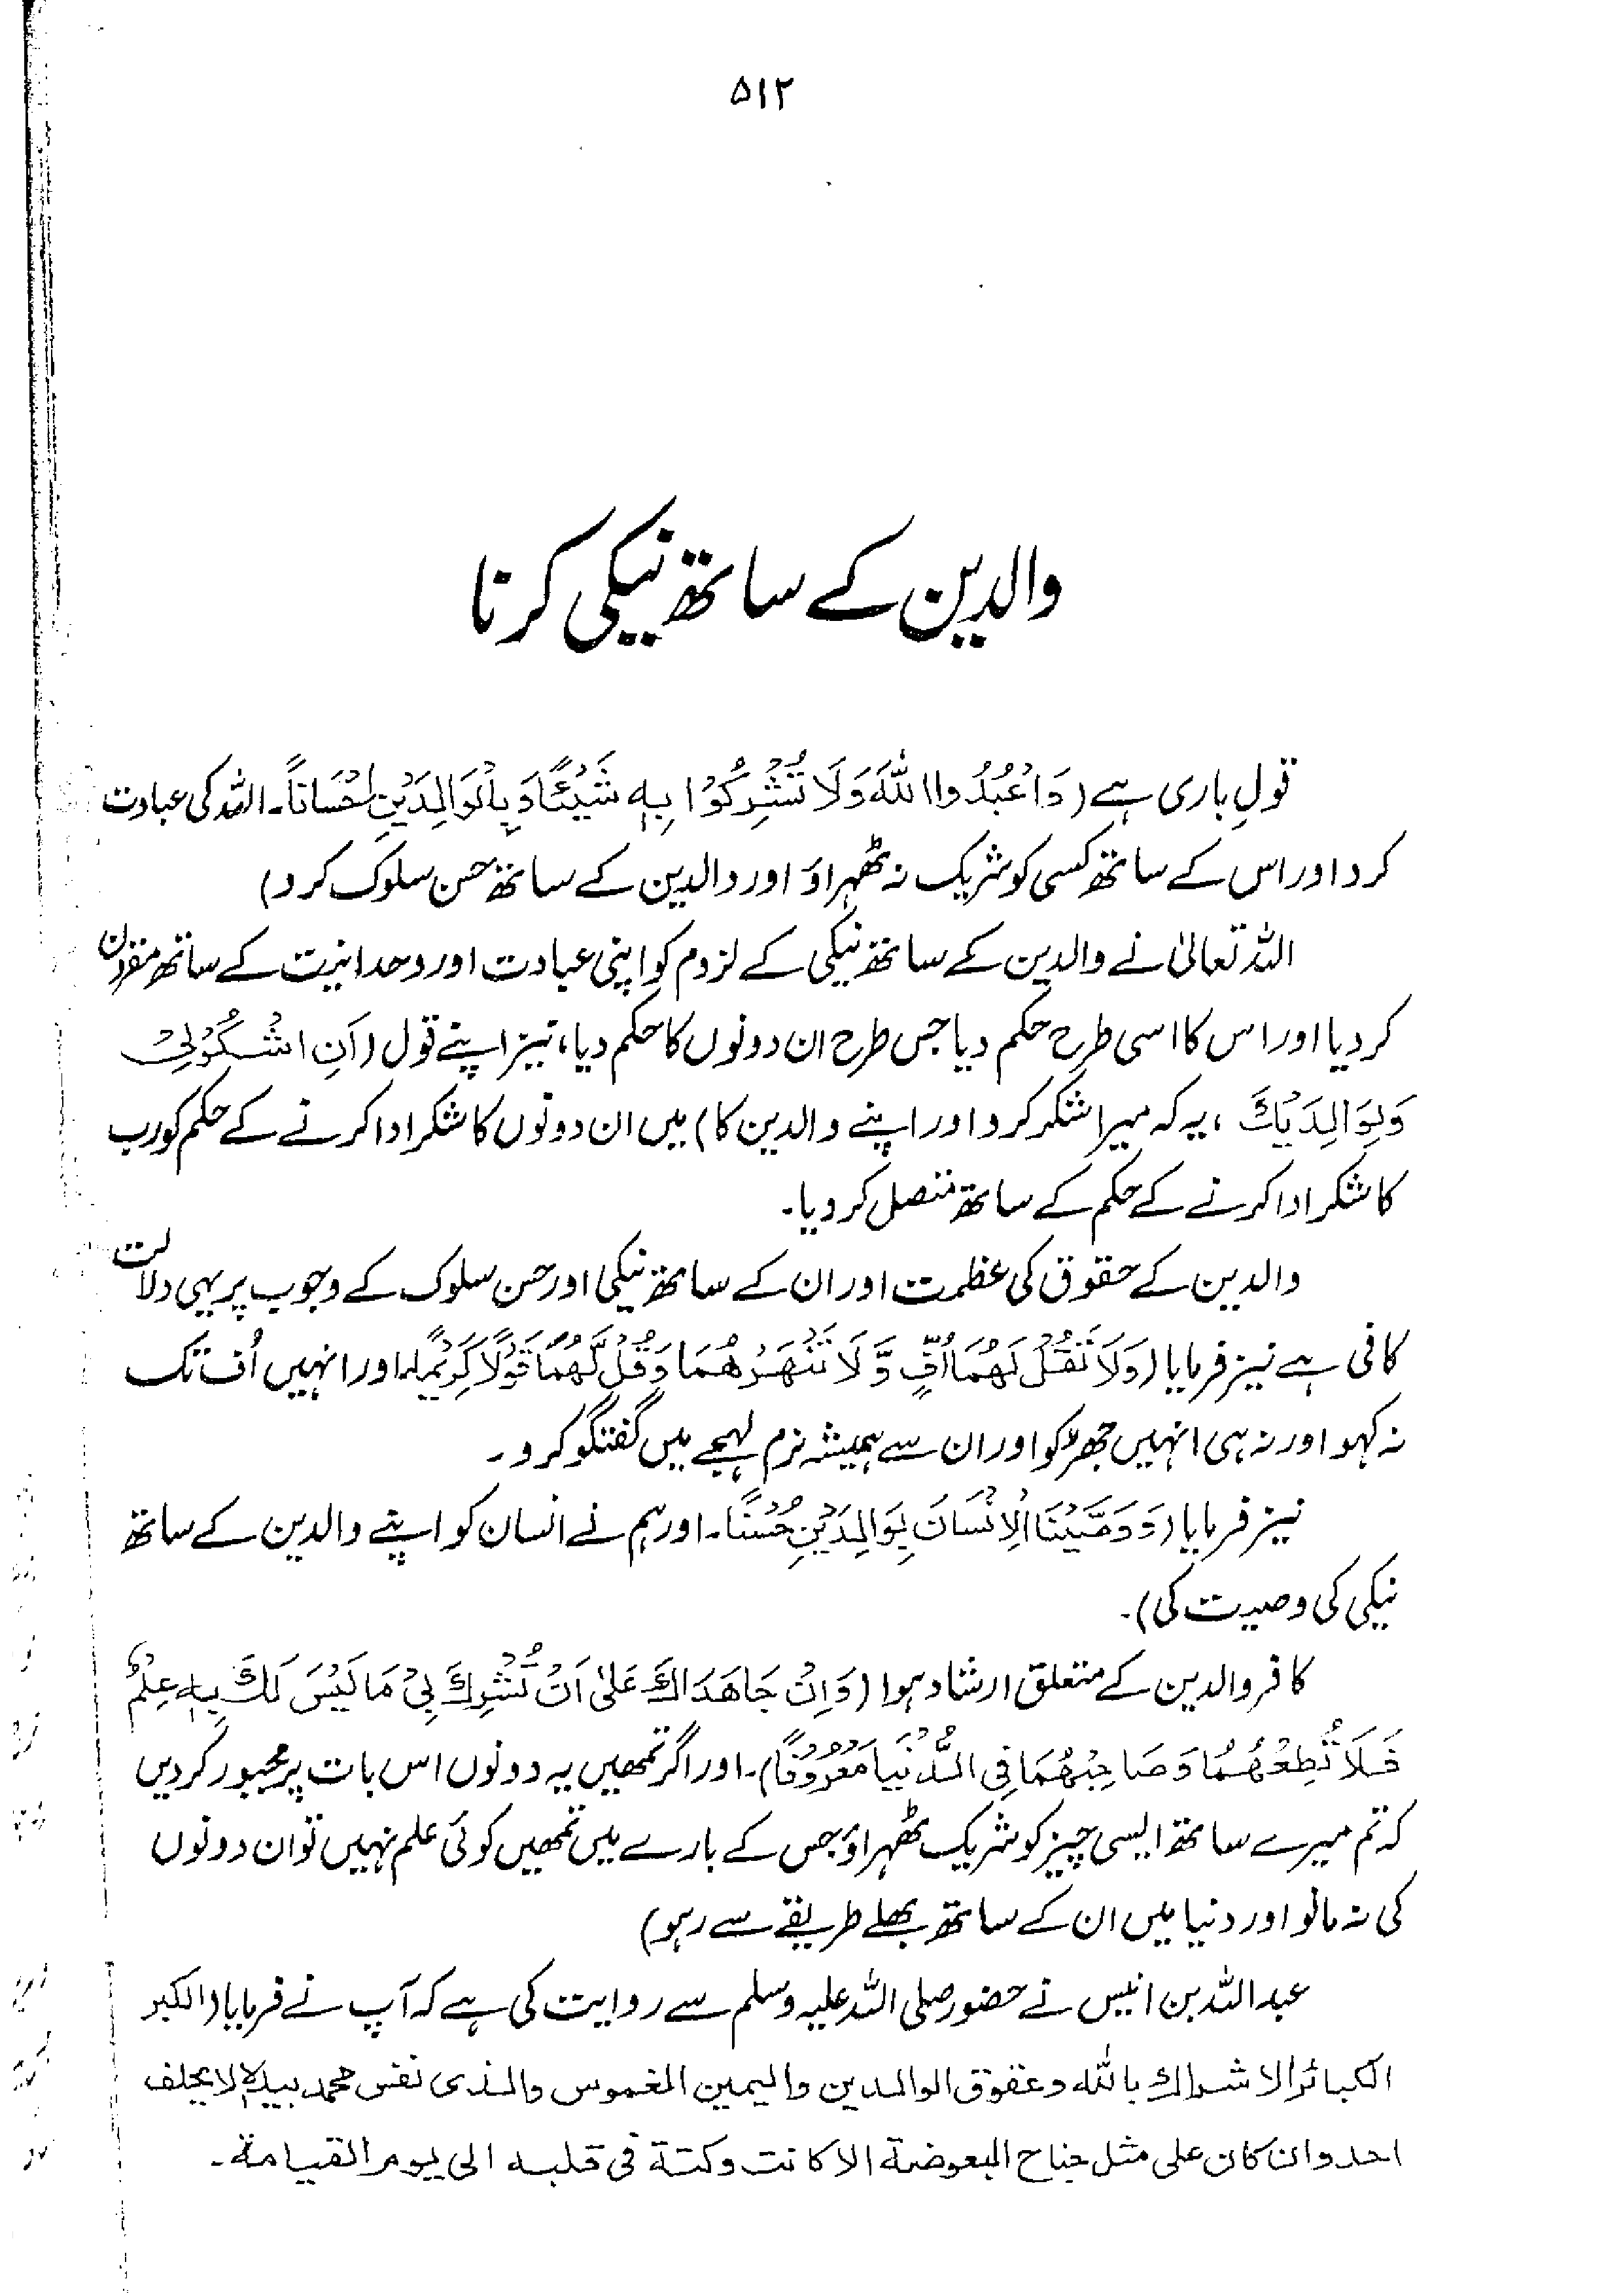 ۵۱۲
والدین کے ساتھ نیکی کرنا
قولِ باری ہے (وَاعْبُدُوا اللّٰهَ وَلَا تُشْرِكُوْا بِهٖ شَيْئًا وَّبِالْوَالِدَيْنِ اِحْسَانًا۔ اللہ کی عبادت
کرو اور اس کے ساتھ کسی کو شریک نہ ٹھہراؤ اور والدین کے ساتھ حسن سلوک کرو)
اللہ تعالیٰ نے والدین کے ساتھ نیکی کے لزوم کو اپنی عبادت اور وحدانیت کے ساتھ مقرون
کردیا اور اس کا اسی طرح حکم دیا جس طرح ان دونوں کا حکم دیا، نیز اپنے قول (اَنِ اشْكُرْلِيْ
وَلِوَالِدَيْكَ ، یہ کہ میرا شکر کرو اور اپنے والدین کا) میں ان دونوں کا شکر ادا کرنے کے حکم کو رب
کا شکر ادا کرنے کے حکم کے ساتھ متصل کردیا۔
والدین کے حقوق کی عظمت اور ان کے ساتھ نیکی اور حسن سلوک کے وجوب پر یہی دلالت
کافی ہے نیز فرمایا (وَلَا تَقُلْ لَهُمَا اُفٍّ وَّلَا تَنْهَرْهُمَا وَقُلْ لَّهُمَا قَوْلًا كَرِيْمًا۔ اور انہیں اُف تک
نہ کہو اور نہ ہی انہیں جھڑکو اور ان سے ہمیشہ نرم لہجے میں گفتگو کرو۔
نیز فرمایا (وَوَصَّيْنَا الْاِنْسَانَ بِوَالِدَيْهِ حُسْنًا۔ اور ہم نے انسان کو اپنے والدین کے ساتھ
نیکی کی وصیت کی)۔
کافر والدین کے متعلق ارشاد ہوا (وَاِنْ جَاهَدَاكَ عَلٰى اَنْ تُشْرِكَ بِيْ مَا لَيْسَ لَكَ بِهٖ عِلْمٌ
فَلَا تُطِعْهُمَا وَصَاحِبْهُمَا فِي الدُّنْيَا مَعْرُوْفًا)۔ اور اگر تمھیں یہ دونوں اس بات پر مجبور کردیں
کہ تم میرے ساتھ ایسی چیز کو شریک ٹھہراؤ جس کے بارے میں تمھیں کوئی علم نہیں تو ان دونوں
کی نہ مانو اور دنیا میں ان کے ساتھ بھلے طریقے سے رہو)
عبداللہ بن انیس نے حضور صلی اللہ علیہ وسلم سے روایت کی ہے کہ آپ نے فرمایا (اکبر
الکبائر الاشراك بالله وعقوق الوالدین والیمین الغموس والذی نفس محمد بیدہ لا یحلف
احد وان کان علی مثل جناح البعوضة الا کانت وکتة فی قلبه الی یوم القیامة۔